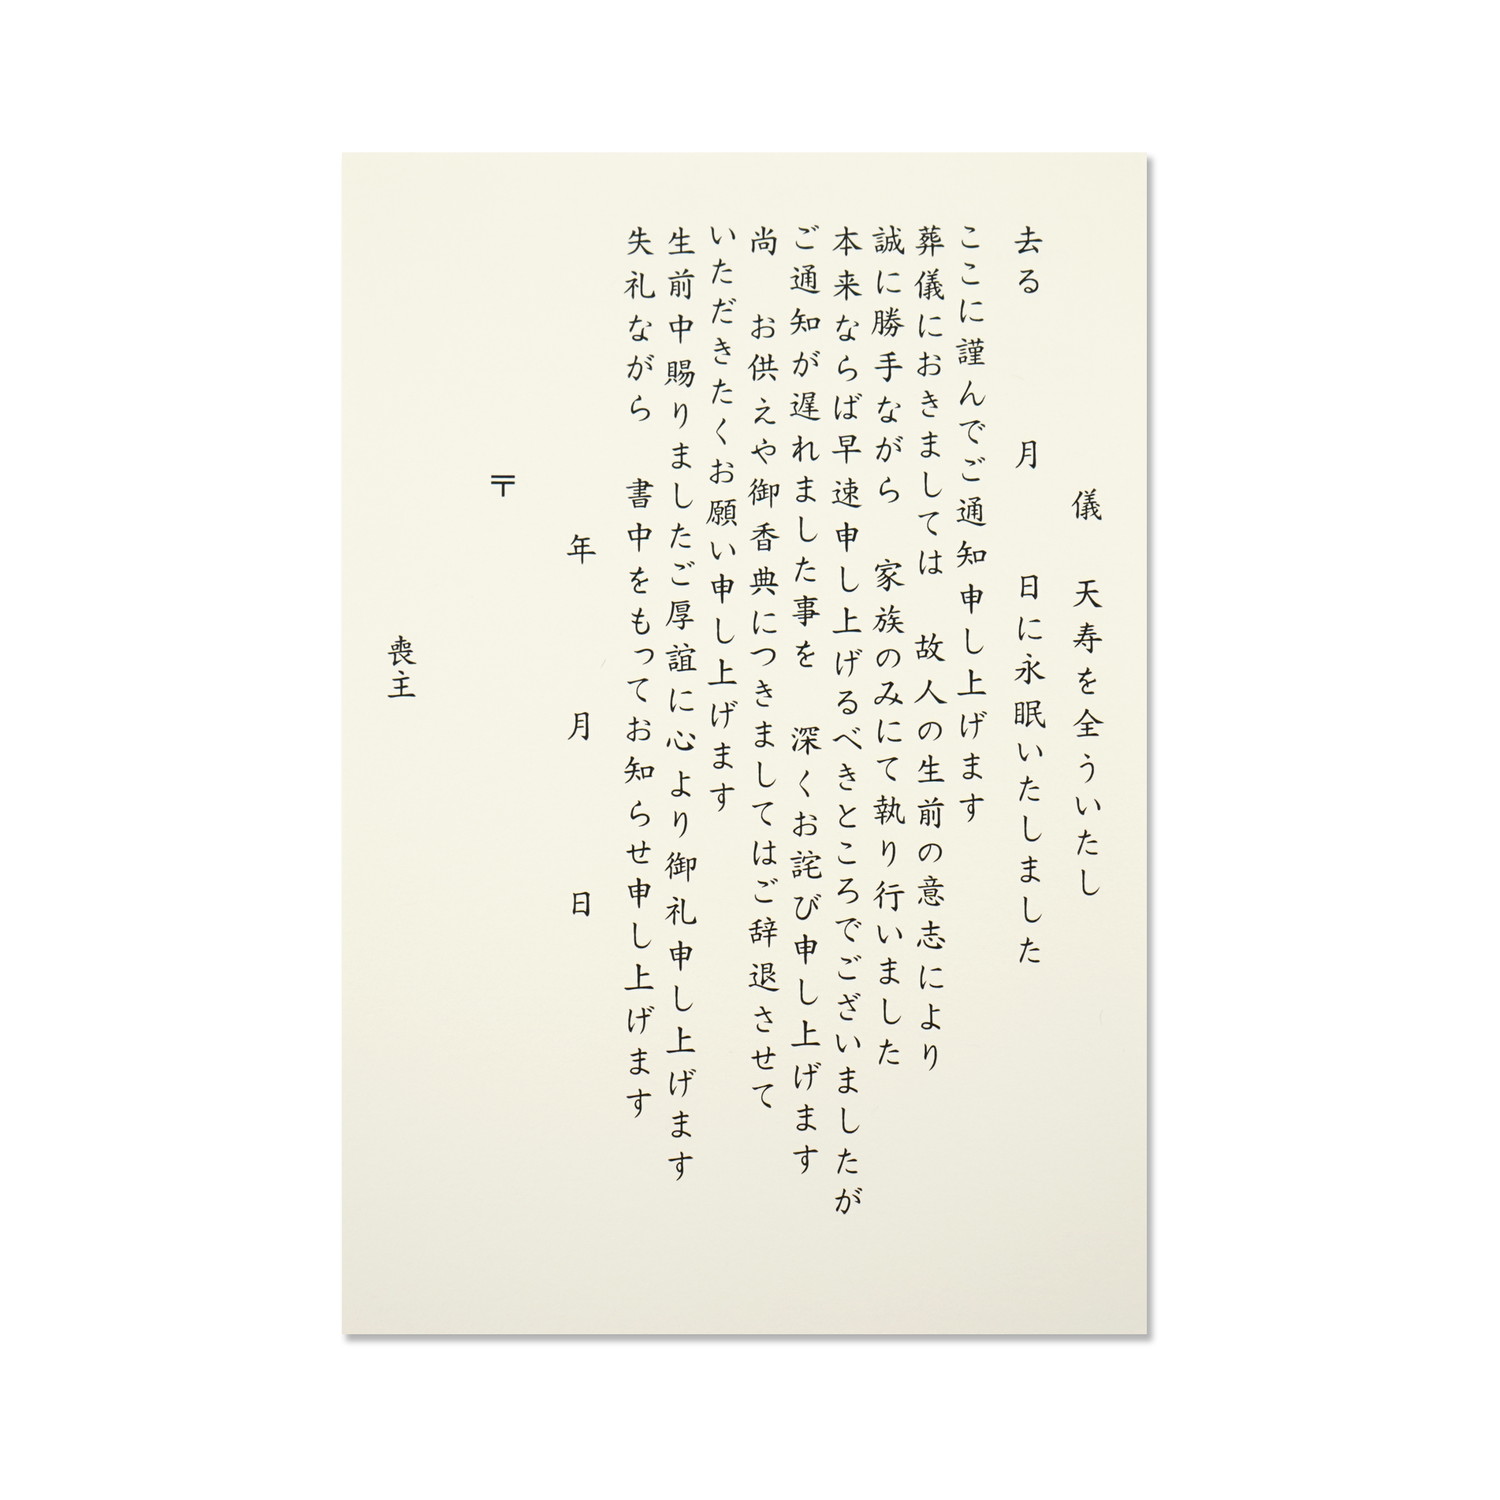 儀　天寿を全ういたし
去る　　　月　　　日に永眠いたしました
ここに謹んでご通知申し上げます
葬儀におきましては　故人の生前の意志により
誠に勝手ながら　家族のみにて執り行いました
本来ならば早速申し上げるべきところでございましたが
ご通知が遅れました事を　深くお詫び申し上げます
尚　お供えや御香典につきましてはご辞退させて
いただきたくお願い申し上げます
生前中賜りましたご厚誼に心より御礼申し上げます
失礼ながら　書中をもってお知らせ申し上げます
年　　　月　　　日
〒
喪主